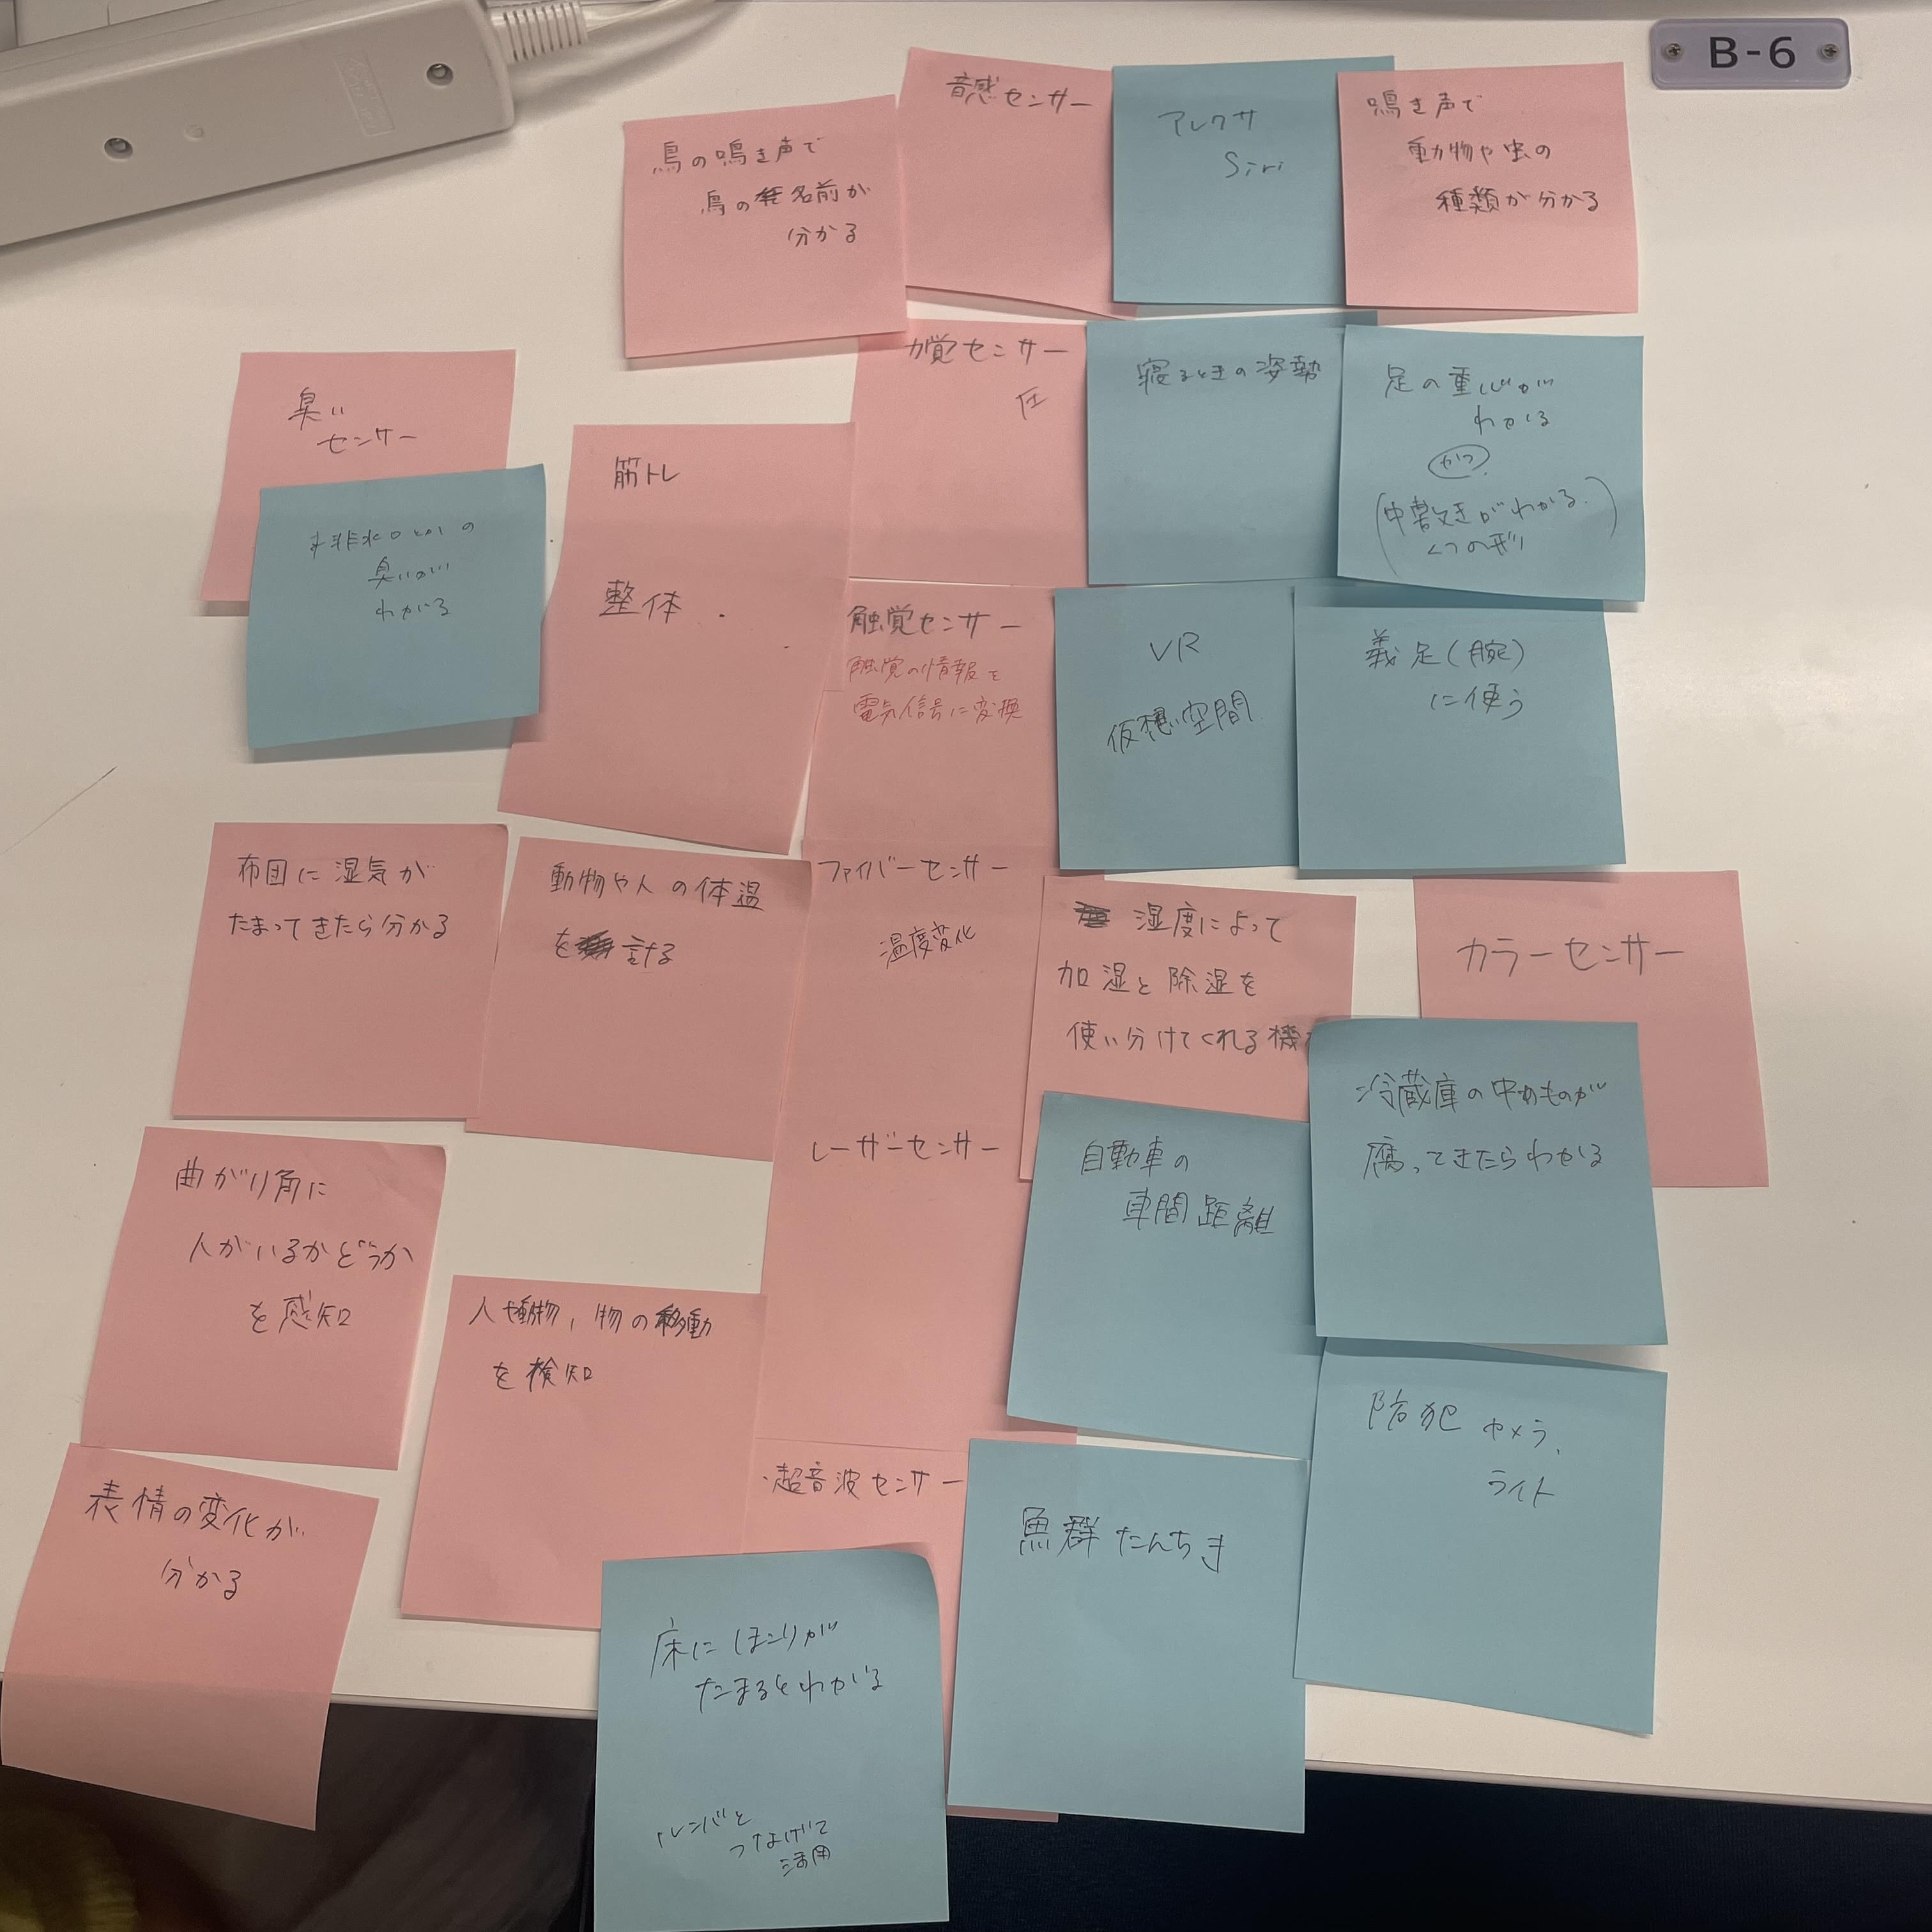 B-6
鳥の鳴き声で
鳥の名前が
分かる
音感センサー
アレクサ
Siri
鳴き声で
動物や虫の
種類が分かる
臭い
センサー
排水口とかの
臭いが
わかる
筋トレ
整体
力覚センサー
圧
寝るときの姿勢
足の重心が
わかる
かつ
(中敷きがわかる)
くつの形
触覚センサー
触覚の情報を
電気信号に変換
VR
仮想空間
義足(腕)
に使う
布団に湿気が
たまってきたら分かる
動物や人の体温
を計る
ファイバーセンサー
温度変化
湿度によって
加湿と除湿を
使い分けてくれる機
カラーセンサー
冷蔵庫の中のものが
腐ってきたらわかる
曲がり角に
人がいるかどうか
を感知
人や動物,物の移動
を検知
レーザーセンサー
自動車の
車間距離
防犯カメラ、
ライト
表情の変化が
分かる
・超音波センサー
魚群たんちき
床にほこりが
たまるとわかる
ルンバと
つなげて
活用